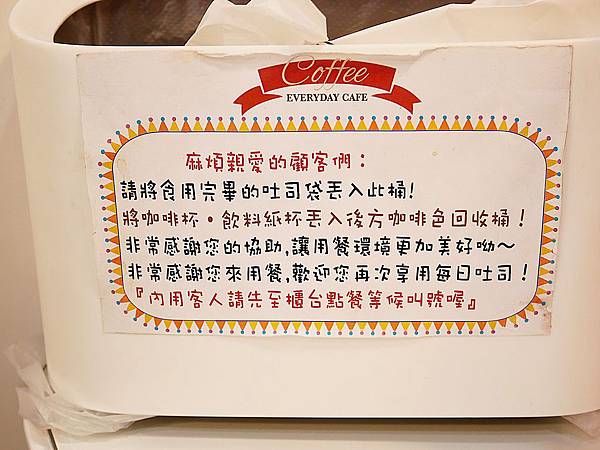 Coffee
EVERYDAY CAFE
麻煩親愛的顧客們：
請將食用完畢的吐司袋丟入此桶！
將咖啡杯。飲料紙杯丟入後方咖啡色回收桶！
非常感謝您的協助,讓用餐環境更加美好呦～
非常感謝您來用餐,歡迎您再次享用每日吐司！
『內用客人請先至櫃台點餐等候叫號喔』